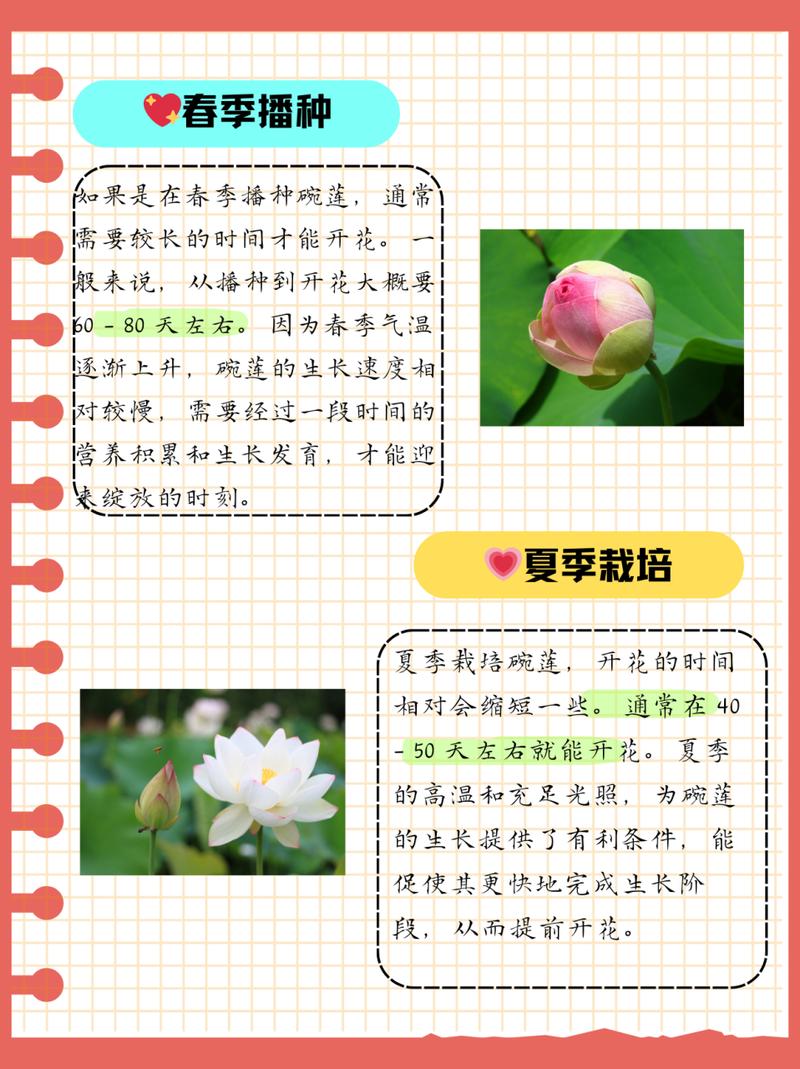 春季播种
如果是在春季播种碗莲，通常
需要较长的时间才能开花。一
般来说，从播种到开花大概要
60 - 80 天左右。因为春季气温
逐渐上升，碗莲的生长速度相
对较慢，需要经过一段时间的
营养积累和生长发育，才能迎
来绽放的时刻。
夏季栽培
夏季栽培碗莲，开花的时间
相对会缩短一些。通常在 40
- 50 天左右就能开花。夏季
的高温和充足光照，为碗莲
的生长提供了有利条件，能
促使其更快地完成生长阶
段，从而提前开花。